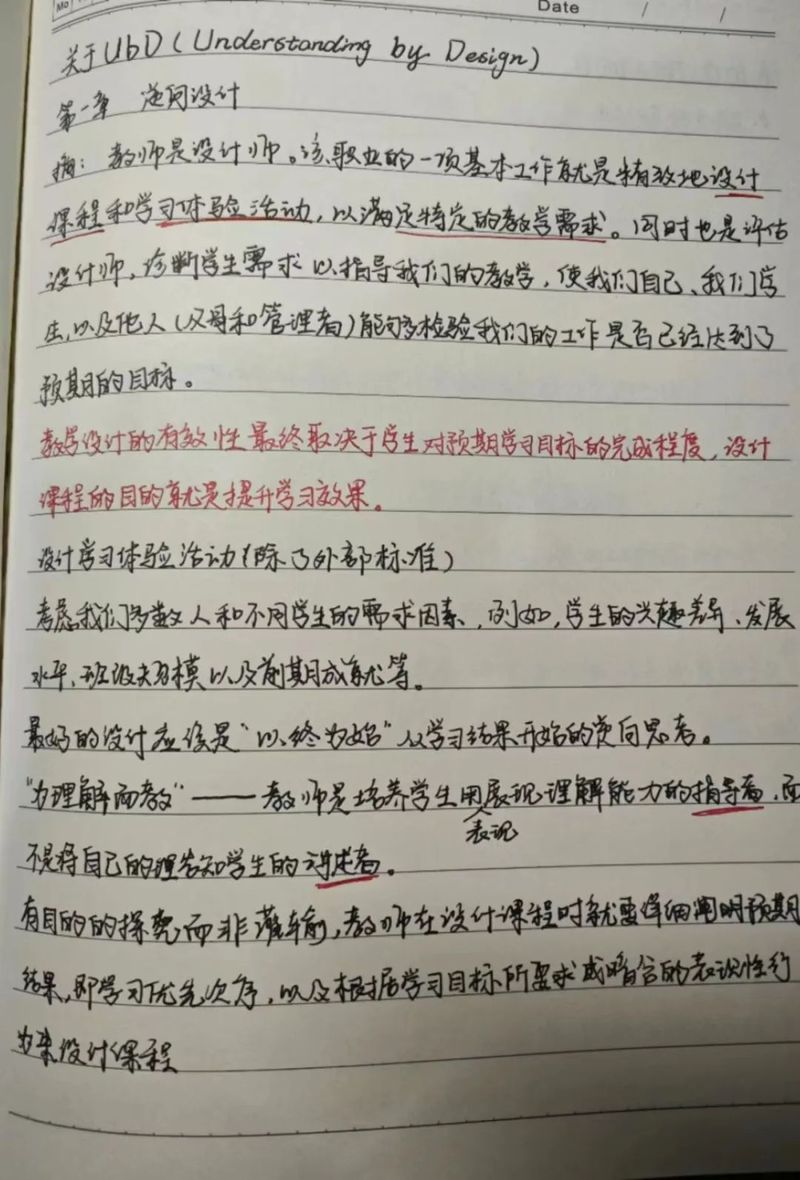 Mo
Date / /
关于UbD(Understanding by Design)
第一章 逆向设计
摘：教师是设计师。该职业的一项基本工作就是精致地设计
课程和学习体验活动，以满足特定的教学需求。同时也是评估
设计师，诊断学生需求以指导我们的教学，使我们自己、我们学
生，以及他人（父母和管理者）能够检验我们的工作是否已经达到了
预期的目标。
教学设计的有效性最终取决于学生对预期学习目标的完成程度，设计
课程的目的就是提升学习效果。
设计学习体验活动（除了外部标准）
考虑我们多数人和不同学生的需求因素，例如，学生的兴趣差异、发展
水平、班级规模以及前期成就等。
最好的设计应该是"以终为始"从学习结果开始的逆向思考。
"为理解而教"——教师是培养学生用展现理解能力的指导者，而
表现
不是将自己的理告知学生的讲述者。
有目的的探究而非灌输，教师在设计课程时就要详细阐明预期
结果，即学习优先次序，以及根据学习目标所要求或暗含的表现性行
为来设计课程